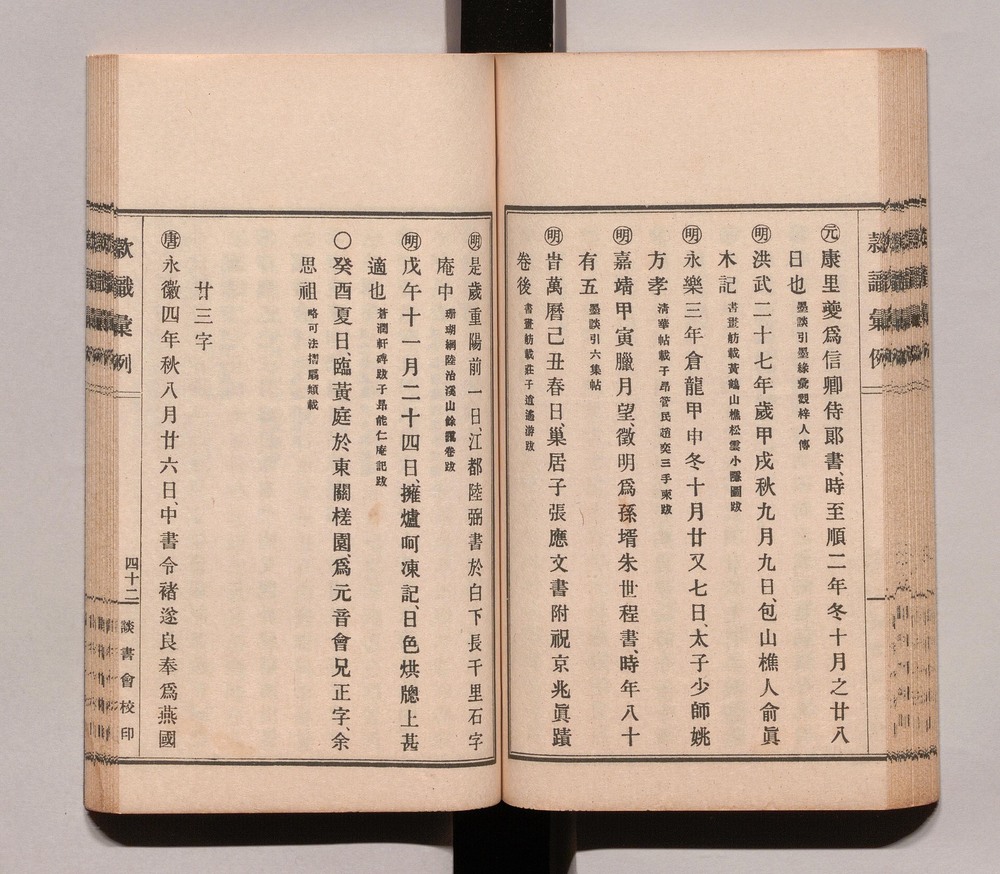 款識彙例
㊎元康里巙爲信卿侍郞書、時至順二年冬十月之廿八
日也墨談引墨緣彙觀梓人傳
㊔明洪武二十七年歲甲戌秋九月九日、包山樵人俞眞
木記書畫舫載黃鶴山樵松雲小隱圖跋
明永樂三年倉龍甲申冬十月廿又七日、太子少師姚
方孝淸華帖載子昂管民趙奕三手柬跋
明嘉靖甲寅臘月望、徵明爲孫壻朱世程書、時年八十
有五墨談引六集帖
明旹萬曆己丑春日、巢居子張應文書附祝京兆眞蹟
卷後書畫舫載莊子逍遙游跋
明是歲重陽前一日、江都陸弼書於白下長千里石字
庵中珊瑚網陸治溪山餘靄卷跋
明戊午十一月二十四日、擁爐呵凍記、日色烘牕上甚
適也蒼潤軒碑跋子昂能仁庵記跋
〇癸酉夏日、臨黃庭於東關槎園、爲元音會兄正字、余
思祖略可法摺扇類載
廿三字
唐永徽四年秋八月廿六日、中書令褚遂良奉爲燕國
款識彙例
四十二
談書會校印